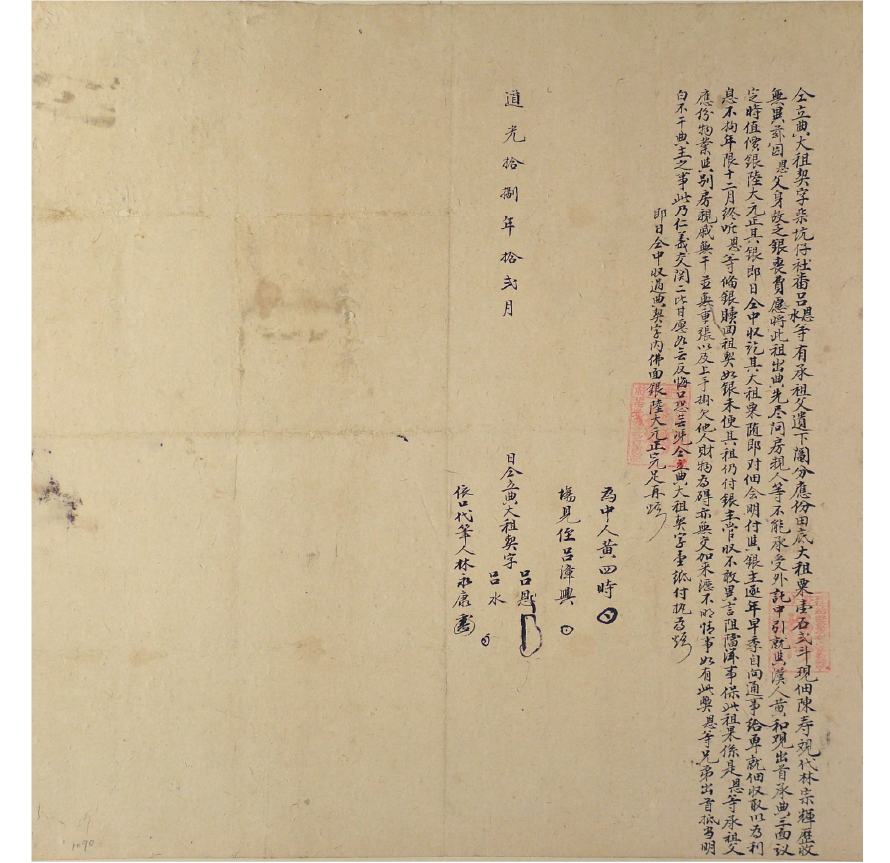 仝立典大租契字朵坑仔社番呂恩水等有承祖父遺下鬮分應份田底大租粟壹石弍斗現佃陳寿观代林宗輝歷收
無異茲因恩父身故乏銀喪費應將此租出典先尽问房親人等不能承受外託中引就與漢人黄和观出首承典三面议
定時值價銀陸大元正其銀即日仝中收訖其大租粟随即对佃会明付與銀主逐年早季自向通事給单就佃收取以為利
息不拘年限十二月终听恩等俻銀贖回租契如銀未便其租仍付銀主掌收不敢異言阻擋滋事保此租果係是恩等承祖父
應份物業與别房親戚無干並無重張以及上手掛欠他人財物為碍亦無交加来歷不明情事如有此獘恩等兄弟出首抵当明
白不干典主之事此乃仁義交関二比甘愿各無反悔口恐無凴仝立典大租契字壹紙付执為炤
即日仝中收过典契字内佛面銀陸大元正完足再炤
為中人黄四時
塲見侄呂漳興
道光拾捌年拾弍月 日仝立典大租契字 呂恩 呂水
依口代筆人林永康
1090